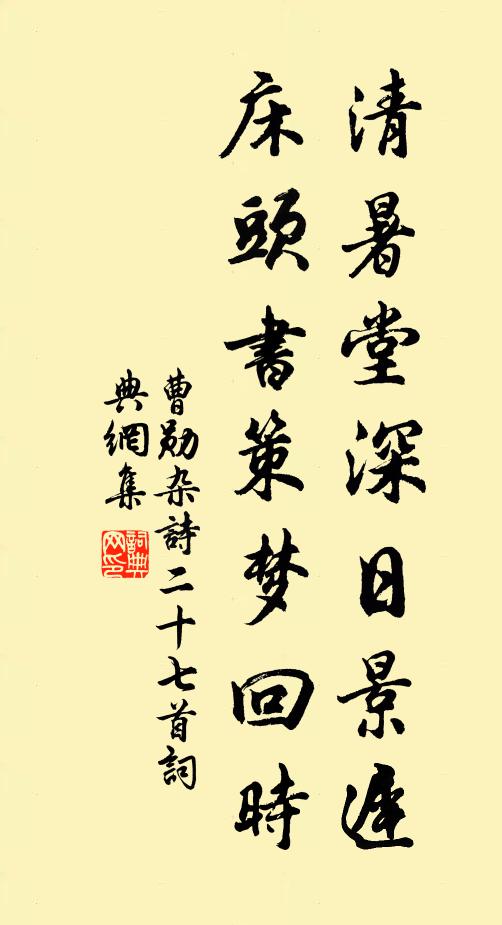 清暑堂深日景遲
床頭書策梦回時
曹勛杂詩二十七首詞
典網集
詞典网印